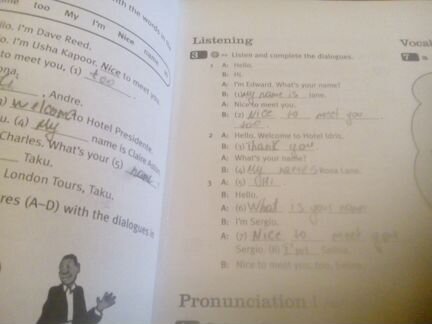 too My I'm Nice name
lo. I'm Dave Reed.
o. I'm Usha Kapoor. Nice to meet you.
to meet you, (1) too .
, Andre.
Welcome to Hotel Presidente.
u. (4) My name is Claire
Charles. What's your (5) name ?
Taku.
London Tours, Taku.
res (A–D) with the dialogues in
Listening
3 Listen and complete the dialogues.
1 A: Hello.
B: Hi.
A: I'm Edward. What's your name?
B: (1) my name is Jane.
A: Nice to meet you.
B: (2) Nice to meet you
too .
2 A: Hello. Welcome to Hotel Idris.
B: (3) Thank you
A: What's your name?
B: (4) My name's Rosa Lane.
3 A: (5) Hi .
B: Hello.
A: (6) What is your name
B: I'm Sergio.
A: (7) Nice to meet you
Sergio. (8) I'm Selina.
B: Nice to meet you, too, Selina.
Pronunciation
Vocab
7 a